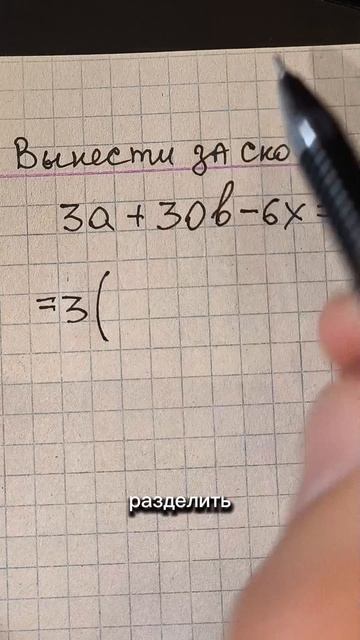 Вынести за ско
3a + 30b - 6x =
= 3 (
разделить